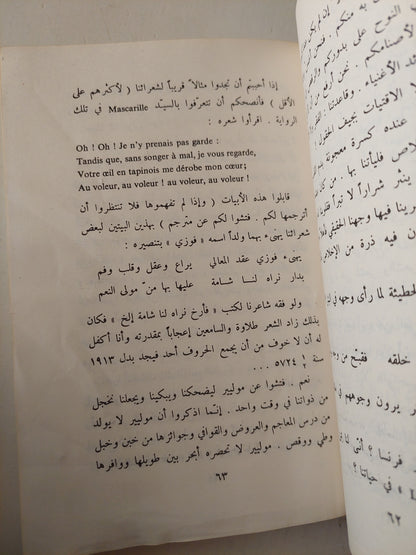 إذا أحببتم أن تجدوا مثالاً قريباً لشعرائنا ( لأكثرهم على
الأقل ) فأنصحكم أن تتعرفوا بالسيد Mascarille في تلك
الرواية . اقرأوا شعره :
Oh ! Oh ! Je n'y prenais pas garde :
Tandis que, sans songer à mal, je vous regarde,
Votre œil en tapinois me dérobe mon cœur;
Au voleur ! au voleur ! au voleur, au voleur !
قابلوا هذه الأبيات ( وإذا لم تفهموها فلا تنتظروا أن
أترجمها لكم . فتشوا لكم عن مترجم ) بهذين البيتين لبعض
شعرائنا يهنىء بهما ولداً اسمه « فوزي » بتنصيره :
يهنىء فوزي عقد المعالي يراع وعقل وقلب وفم
بدار نراه لنا شامة عليها بها من مولى النعم
ولو فقه شاعرنا لكتب « فأرخ نراه لنا شامة إلخ » فكان
بذلك زاد الشعر طلاوة والسامعين إعجاباً بمقدرته وأنا أكفل
له أن لا خوف من أن يجمع الحروف أحد فيجد بدل ١٩١٣
سنة ½ ٥٧٢٤ ...
نعم . فتشوا عن موليير ليضحكنا ويبكينا ويجعلنا نخجل
من ذواتنا في وقت واحد . إنما اذكروا أن موليير لا يولد
من درس المعاجم والعروض والقوافي وجوائزها من خبن وخبل
وطي ووقص . موليير لا تحصره أبحر بين طويلها ووافرها
٦٣
به منكم .
النوح على
بدوركم
أصنامكم . نحن
الأغنياء . وقاعدتنا
الاقتيات بجيف الحقول
عنده كسرة معجونة
فليأتنا بها . من كان
ينثر شراراً لا تبرأ
فيها وجهنا الحقيقي
فيه ذرة من الإخلاص
لما رأى وجهه في
خلقه فقبح من
يرون وجوههم في
فرنسا ؟
في حياتنا ؟
٦٢